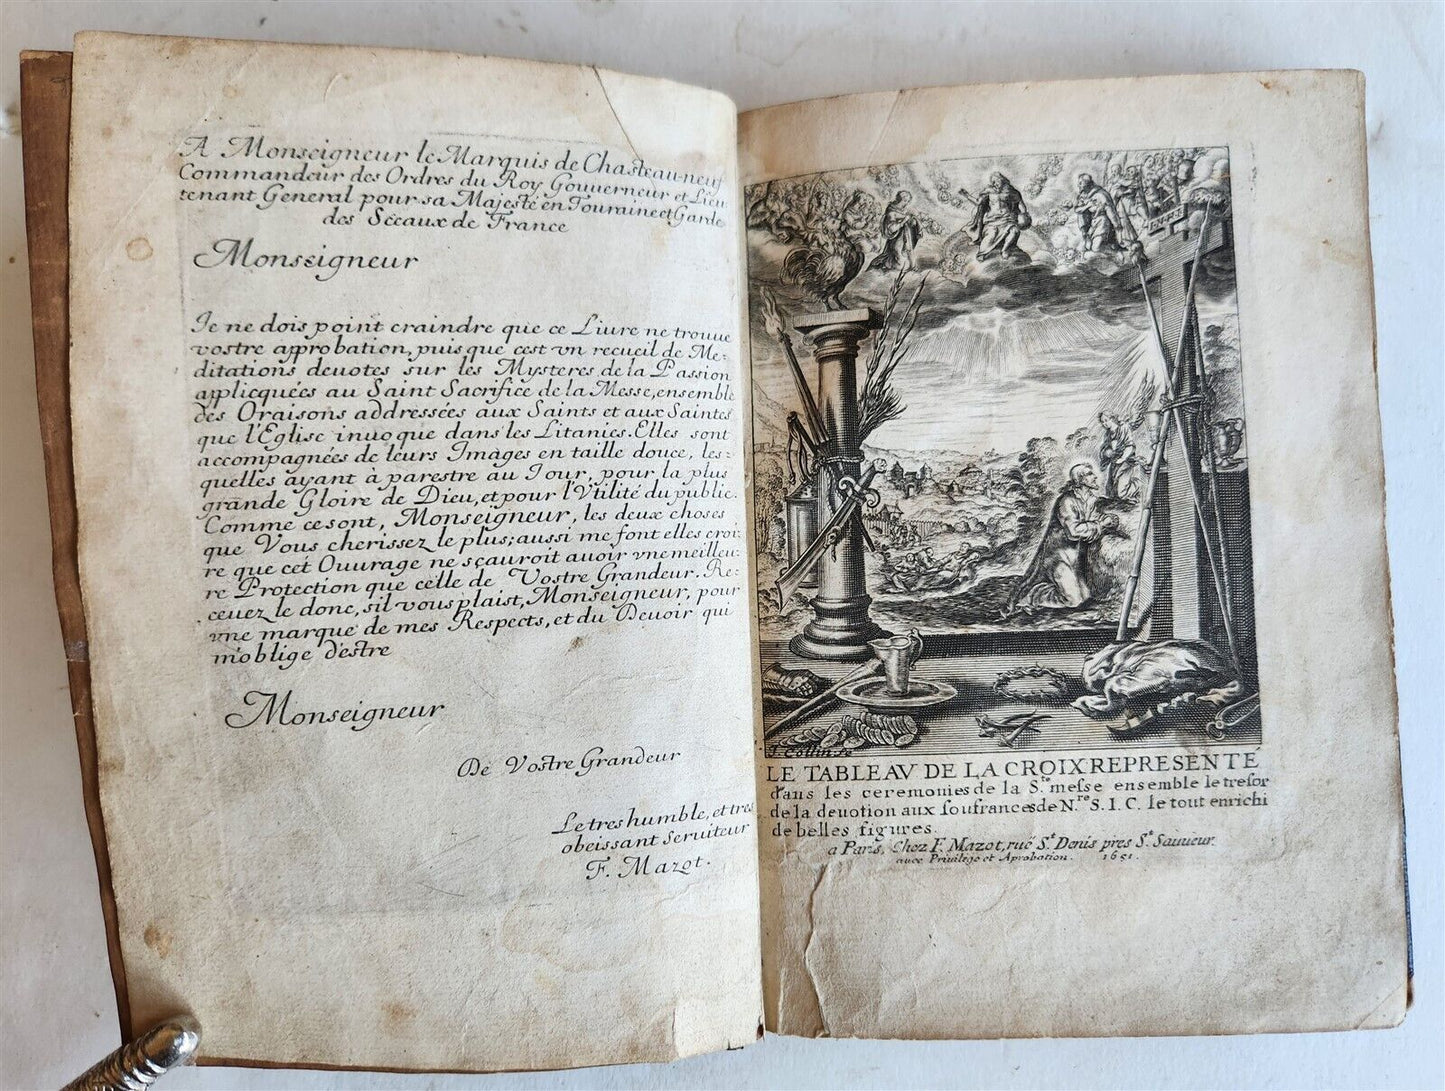 A Monseigneur le Marquis de Chasteau-neuf
Commandeur des Ordres du Roy Gouuerneur et Lieu-
tenant General pour sa Majesté en Touraine et Garde
des Sceaux de France
Monseigneur
Je ne dois point craindre que ce Liure ne trouue
vostre approbation, puis que c'est vn recueil de Me-
ditations deuotes sur les Mysteres de la Passion
applicquées au Saint Sacrifice de la Messe, ensemble
des Oraisons addressées aux Saints et aux Saintes
que l'Eglise inuoque dans les Litanies. Elles sont
accompagnées de leurs Images en taille douce, les-
quelles ayant à parestre au Jour, pour la plus
grande Gloire de Dieu, et pour l'Vtilité du public.
Comme ce sont, Monseigneur, les deux choses
que Vous cherissez le plus; aussi me font elles croi-
re que cet Ouurage ne sçauroit auoir vne meilleu-
re Protection que celle de Vostre Grandeur. Re-
ceuez le donc, s'il vous plaist, Monseigneur, pour
vne marque de mes Respects, et du Deuoir qui
m'oblige d'estre
Monseigneur
De Vostre Grandeur
Le tres humble, et tres
obeissant Seruiteur
F. Mazot.
J. Collin fe
LE TABLEAV DE LA CROIX REPRESENTÉ
dans les ceremonies de la S.te messe ensemble le tresor
de la deuotion aux soufrances de N.re S. I. C. le tout enrichi
de belles figures.
a Paris, Chez F. Mazot, ruë S.t Denis pres S.t Sauueur.
auec Priuilege et Aprobation. 1651.